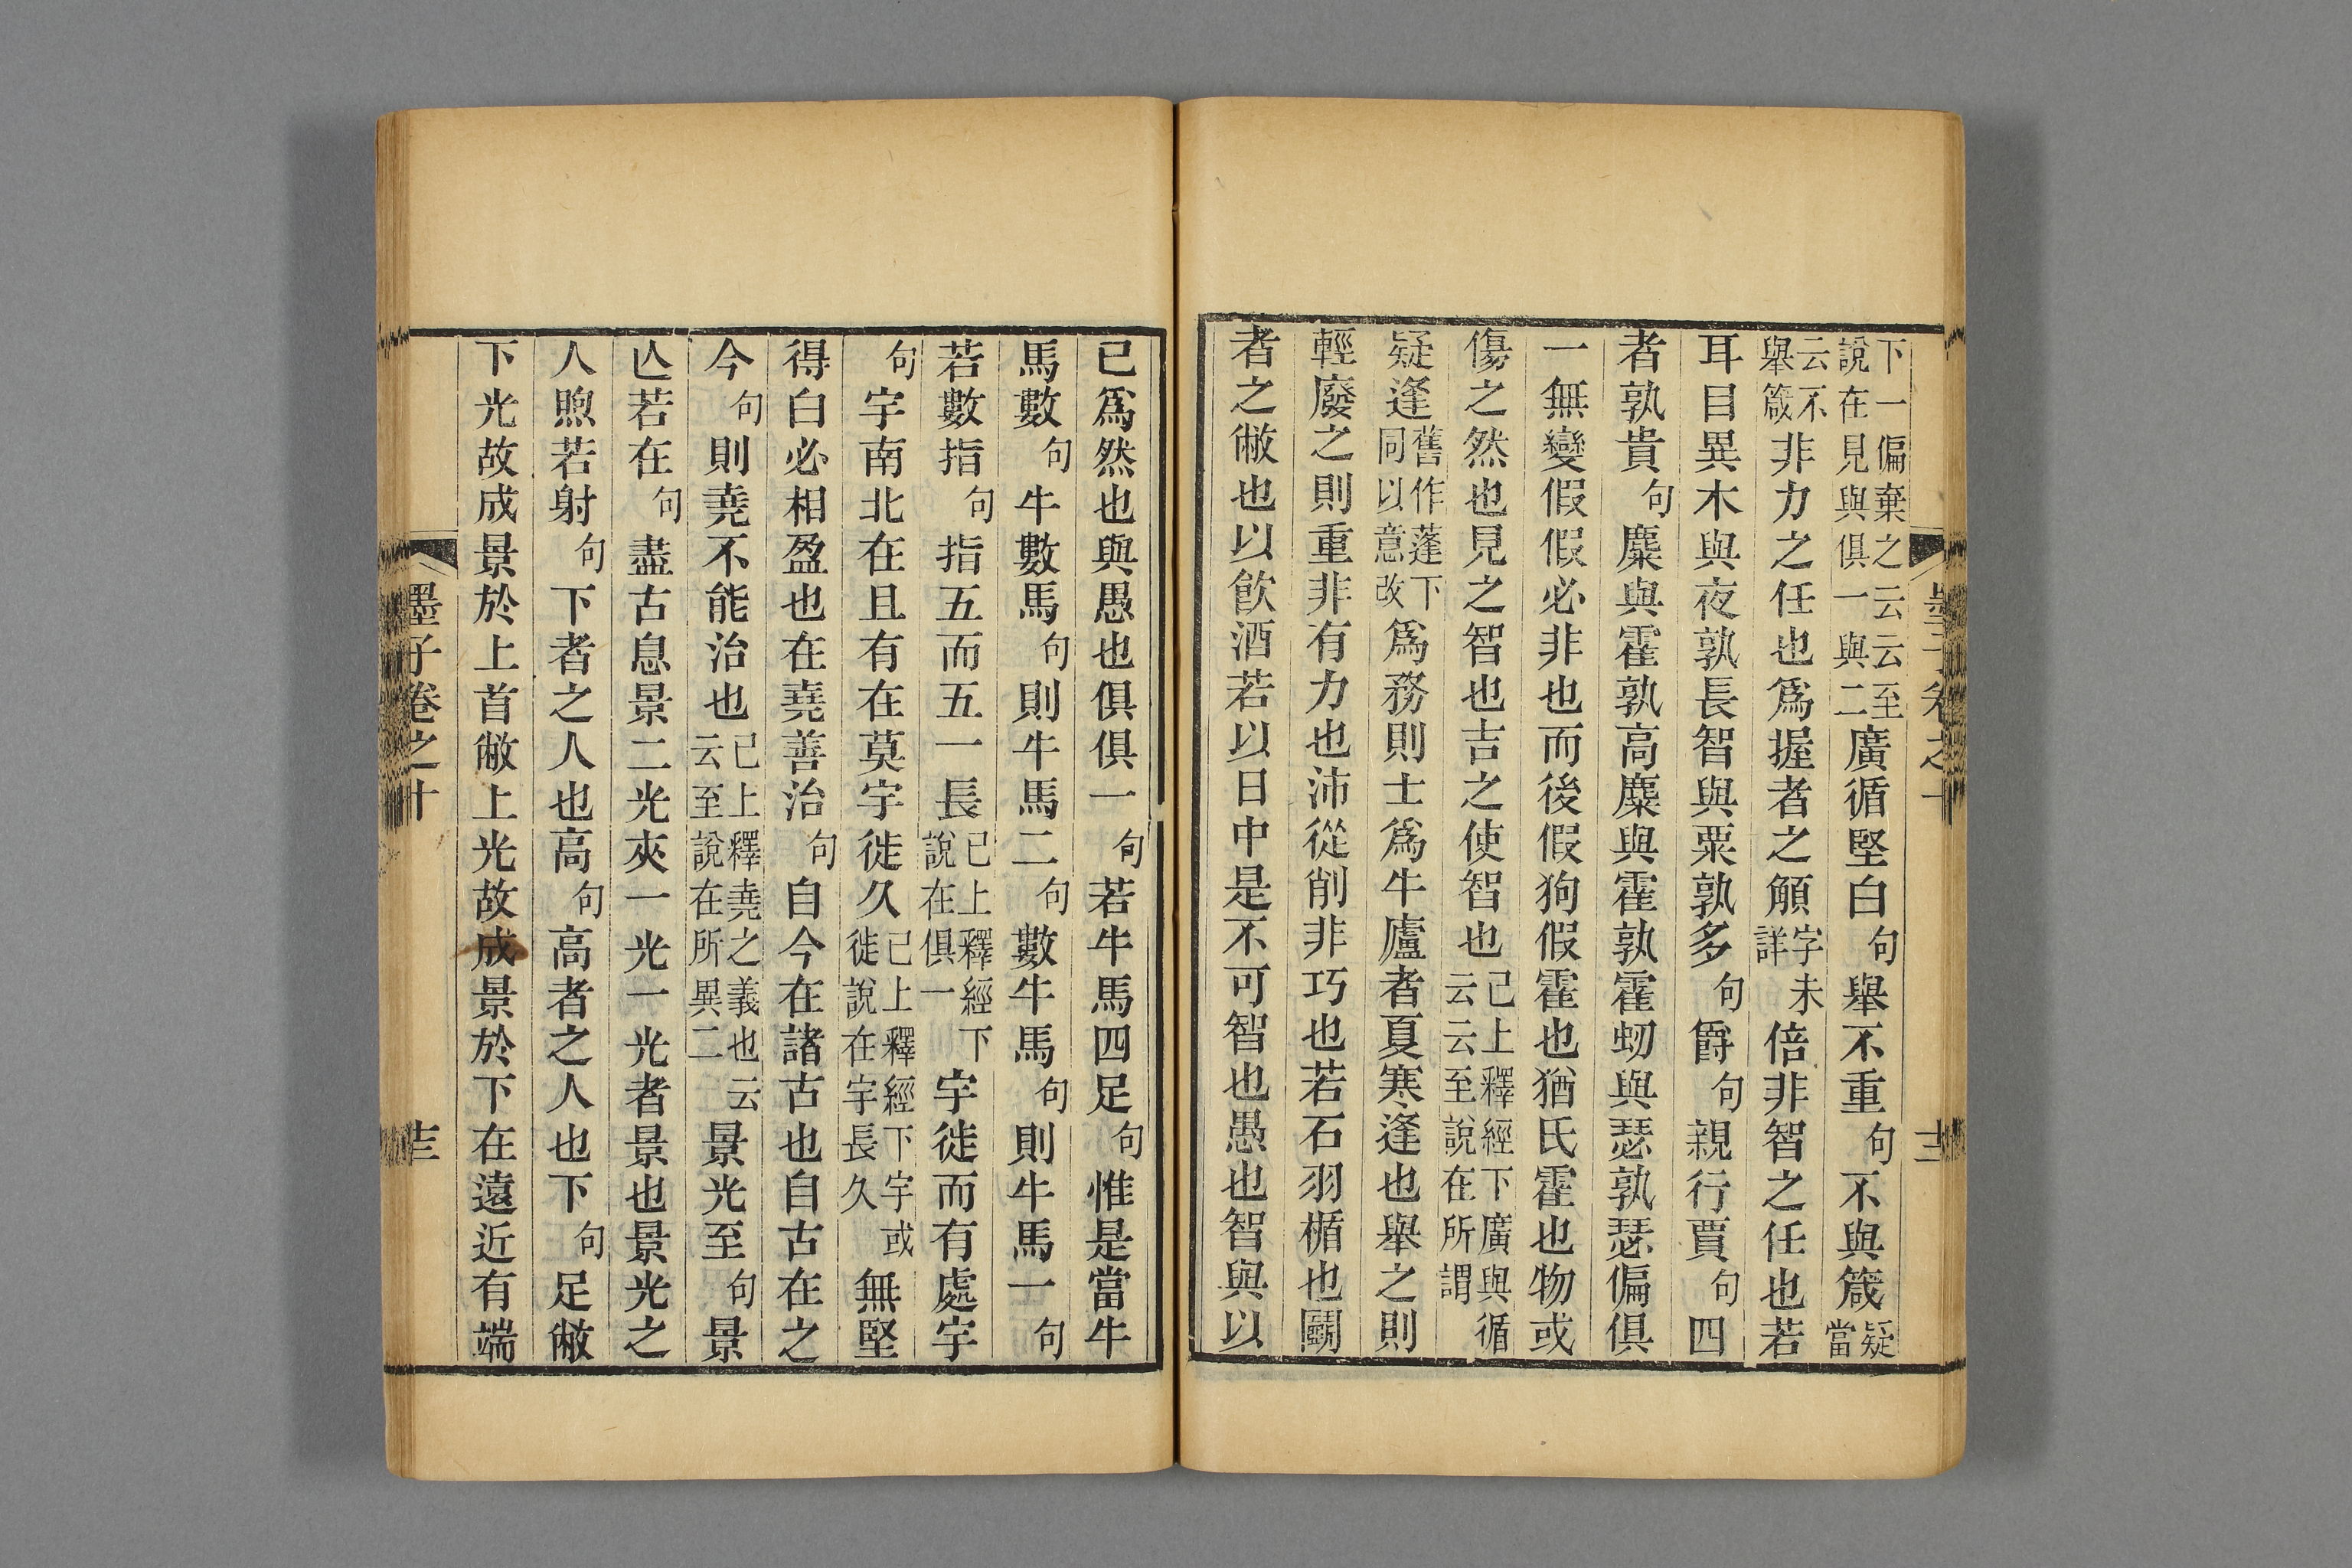 墨子卷之十 十二
下一偏棄之云云至說在見與俱一與二廣循堅白句舉不重句不與箴疑當
云不舉箴非力之任也爲握者之䚗字未詳倍非智之任也若
耳目異木與夜孰長智與粟孰多句爵句親行賈句四
者孰貴句麋與霍孰高麋與霍孰霍蚓與瑟孰瑟偏俱
一無變假假必非也而後假狗假霍也猶氏霍也物或
傷之然也見之智也吉之使智也已上釋經下廣與循云云至說在所謂
疑逢舊作蓬下同以意改爲務則士爲牛廬者夏寒逢也舉之則
輕廢之則重非有力也沛從削非巧也若石羽楯也鬭
者之敝也以飮酒若以日中是不可智也愚也智與以
已爲然也與愚也俱俱一句若牛馬四足句惟是當牛
馬數句牛數馬句則牛馬二句數牛馬句則牛馬一句
若數指句指五而五一長已上釋經下說在俱一宇徙而有處宇
句宇南北在且有在莫宇徙久已上釋經下宇或徙說在宇長久無堅
得白必相盈也在堯善治句自今在諸古也自古在之
今句則堯不能治也已上釋堯之義也云云至說在所異二景光至句景
亾若在句盡古息景二光夾一光一光者景也景光之
人煦若射句下者之人也高句高者之人也下句足敝
下光故成景於上首敝上光故成景於下在遠近有端
墨子卷之十 十三